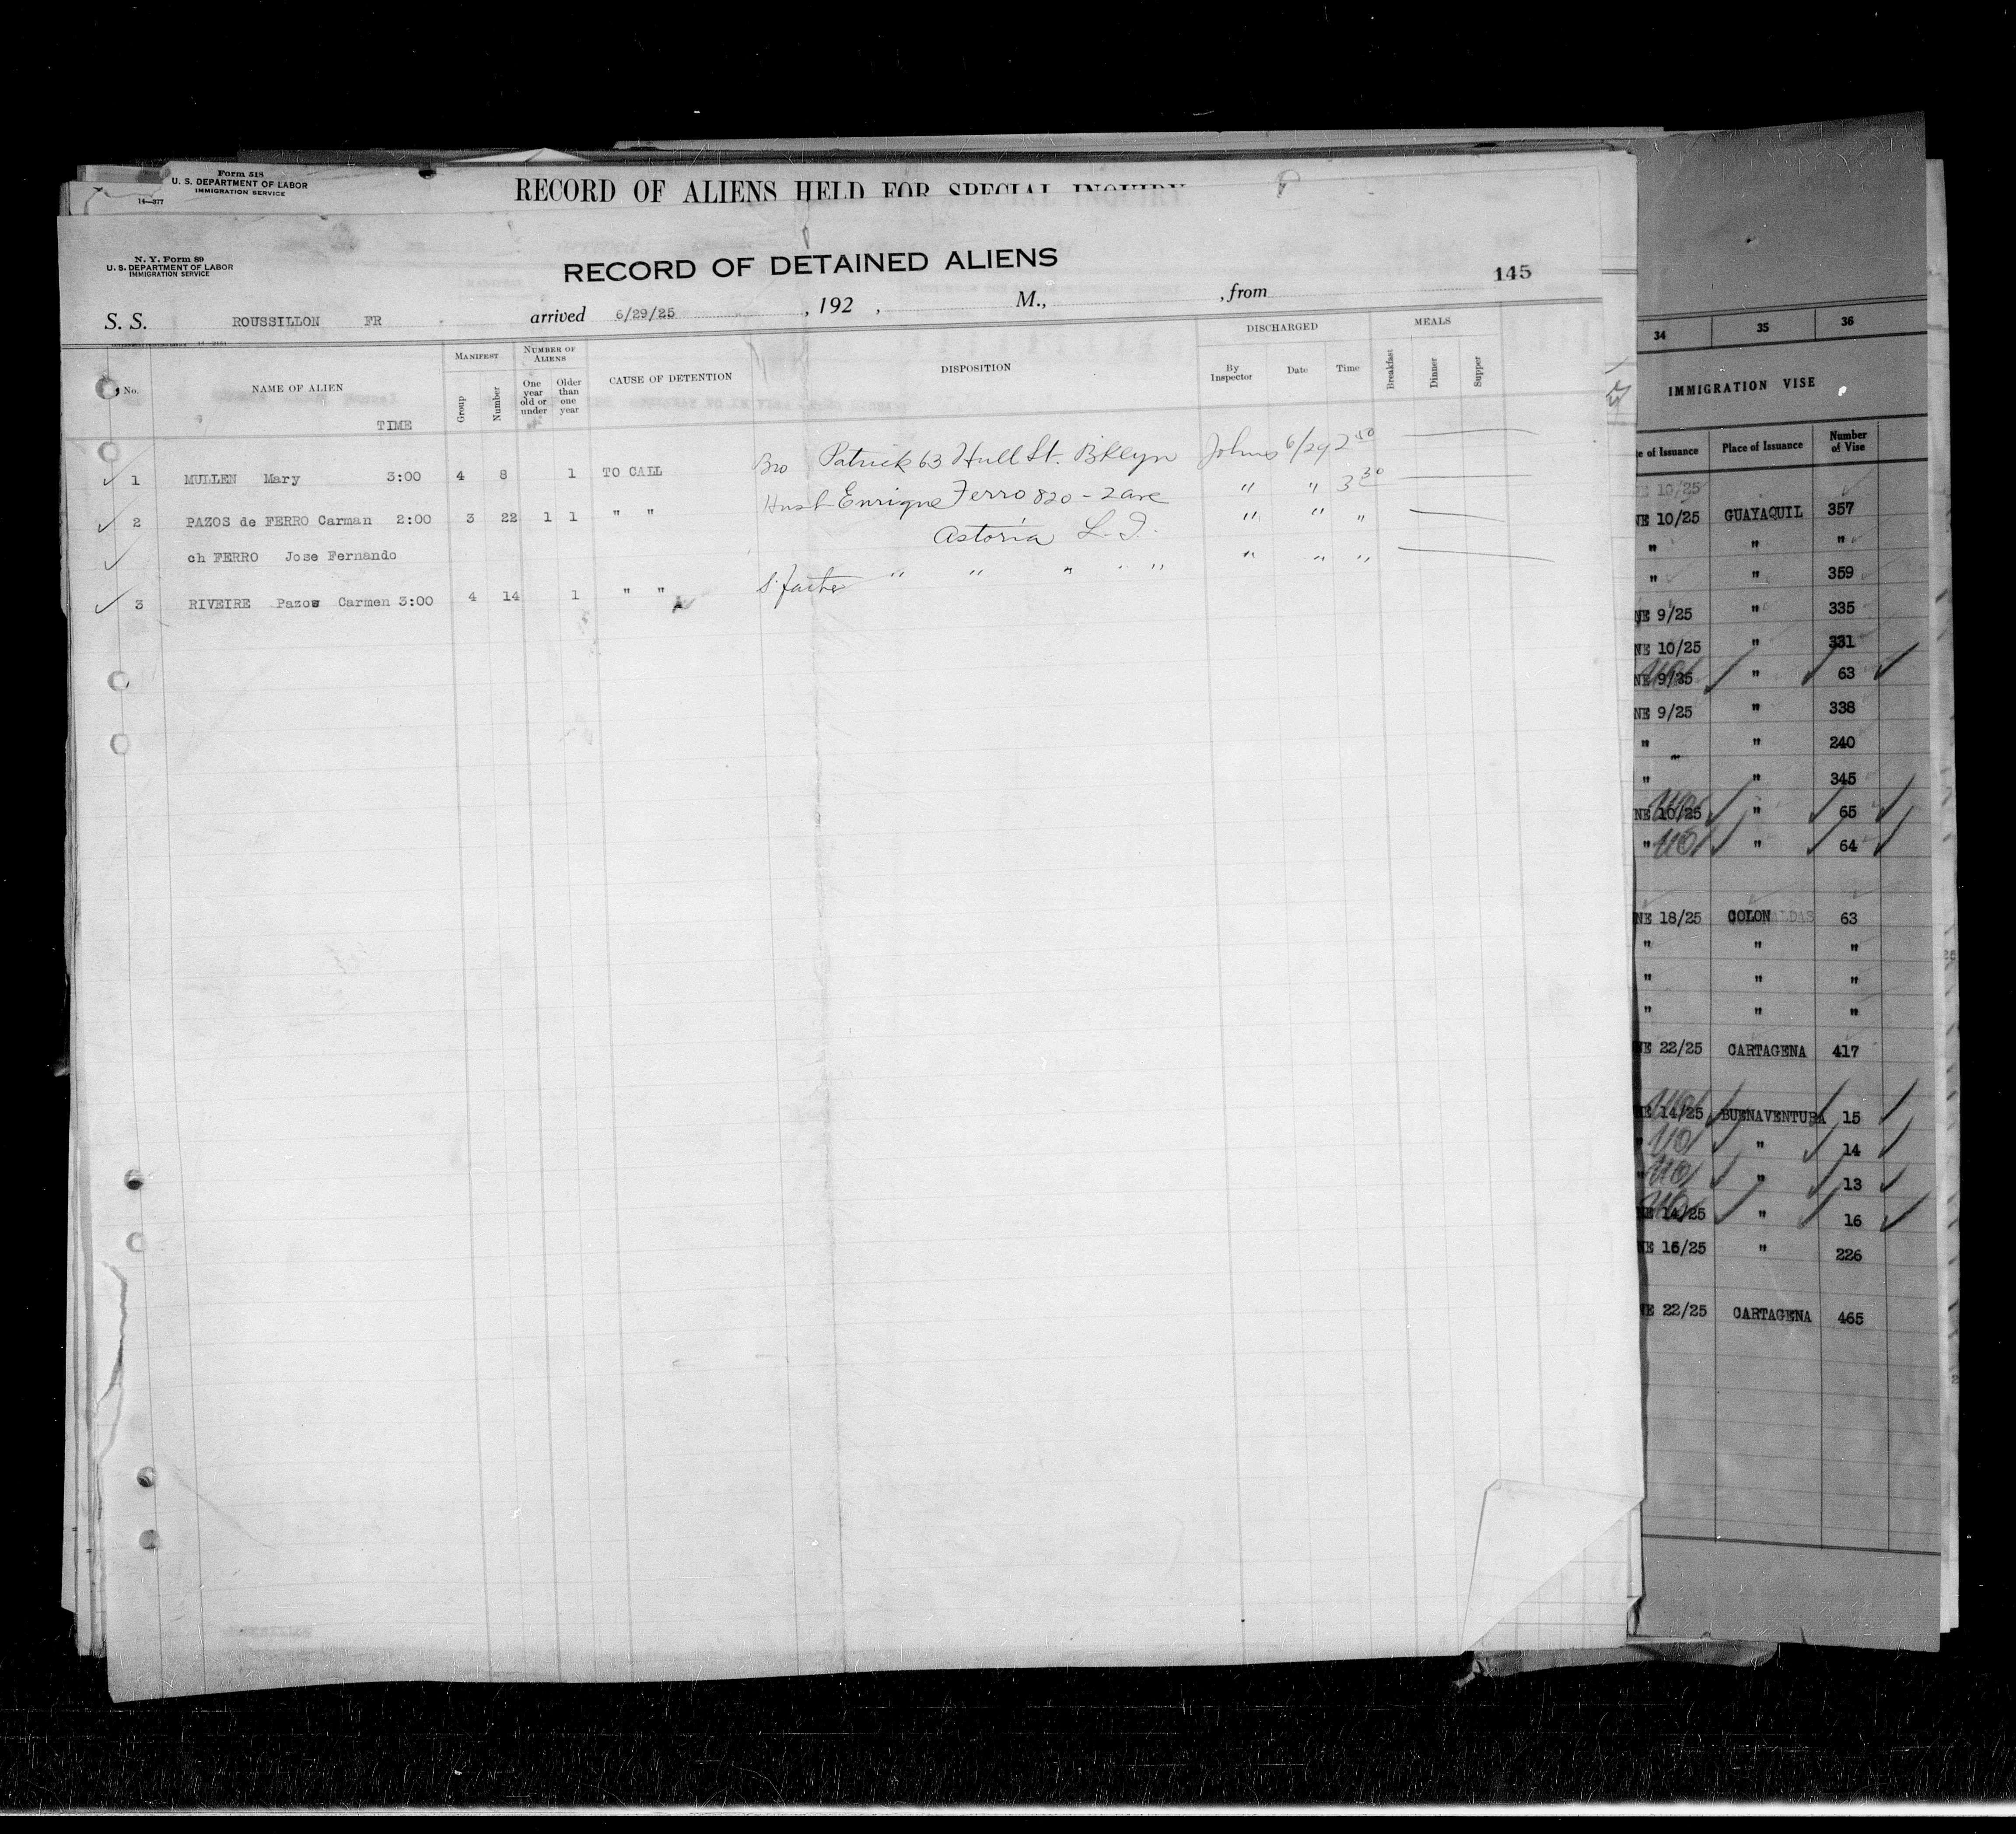 Form 518
U. S. DEPARTMENT OF LABOR
IMMIGRATION SERVICE
14—377
RECORD OF ALIENS HELD FOR SPECIAL INQUIRY
N. Y. Form 89
U. S. DEPARTMENT OF LABOR
IMMIGRATION SERVICE
RECORD OF DETAINED ALIENS
145
S. S. ROUSSILLON FR arrived 6/29/25 , 192 , M., , from
No. NAME OF ALIEN TIME MANIFEST Group Number NUMBER OF ALIENS One year old or under Older than one year CAUSE OF DETENTION DISPOSITION DISCHARGED By Inspector Date Time MEALS Breakfast Dinner Supper
1 MULLEN Mary 3:00 4 8 1 TO CALL Bro Patrick 63 Hull St. Bklyn Johns 6/29 2 50
2 PAZOS de FERRO Carman 2:00 3 22 1 1 " " Husb Enrique Ferro 820 - 2 ave " " 3 30
ch FERRO Jose Fernando Astoria L. I. " " "
3 RIVEIRE Pazos Carmen 3:00 4 14 1 " " S. father " " " " " " " "
34 35 36
IMMIGRATION VISE
e of Issuance Place of Issuance Number of Vise
NE 10/25
NE 10/25 GUAYAQUIL 357
" " "
" " 359
NE 9/25 " 335
NE 10/25 " 331
NE 9/25 " 63
NE 9/25 " 338
" " 240
" " 345
NE 10/25 " 65
" " 64
NE 18/25 COLON 63
" " "
" " "
" " "
NE 22/25 CARTAGENA 417
NE 14/25 BUENAVENTURA 15
" " 14
" " 13
NE 14/25 " 16
NE 16/25 " 226
NE 22/25 CARTAGENA 465